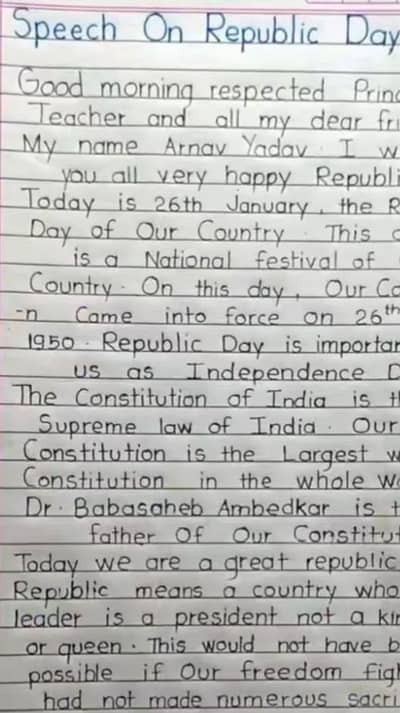 Speech On Republic Day
Good morning respected Princ
Teacher and all my dear fri
My name Arnav Yadav . I w
you all very happy Republi
Today is 26th January, the R
Day of Our Country . This
is a National festival of
Country . On this day, Our Co
-n Came into force on 26th
1950 . Republic Day is importan
us as Independence D
The Constitution of India is th
Supreme law of India . Our
Constitution is the Largest w
Constitution in the whole wo
Dr . Babasaheb Ambedkar is t
father Of Our Constitut
Today we are a great republic
Republic means a country who
leader is a president not a kin
or queen . This would not have b
possible if Our freedom figh
had not made numerous sacri